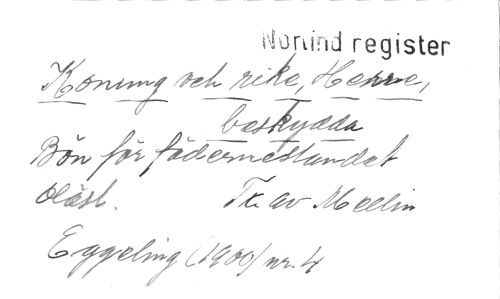 Norlind register
Konung och rike, Herre,
beskydda
Bön för fädernestandet
bläsl. Tr. av Medin
Eggeling (1900) nr. 4